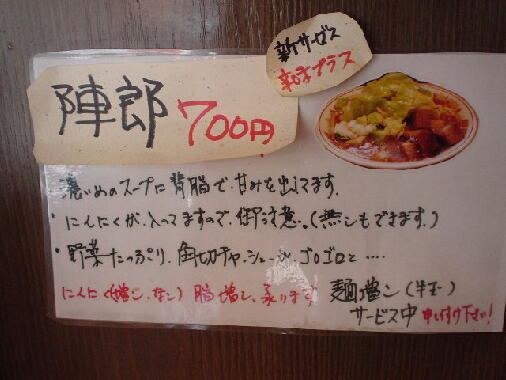 新サービス
辛味プラス
陣郎 700円
濃いめのスープに背脂で、甘みを出してます。
・にんにくが、入ってますので、御注意。(無しもできます。)
・野菜たっぷり、角切チャーシューが、ゴロゴロと....
にんにく(増し、なし) 脂増し、承ります
麺増し(半玉)
サービス中 申し付け下さい!